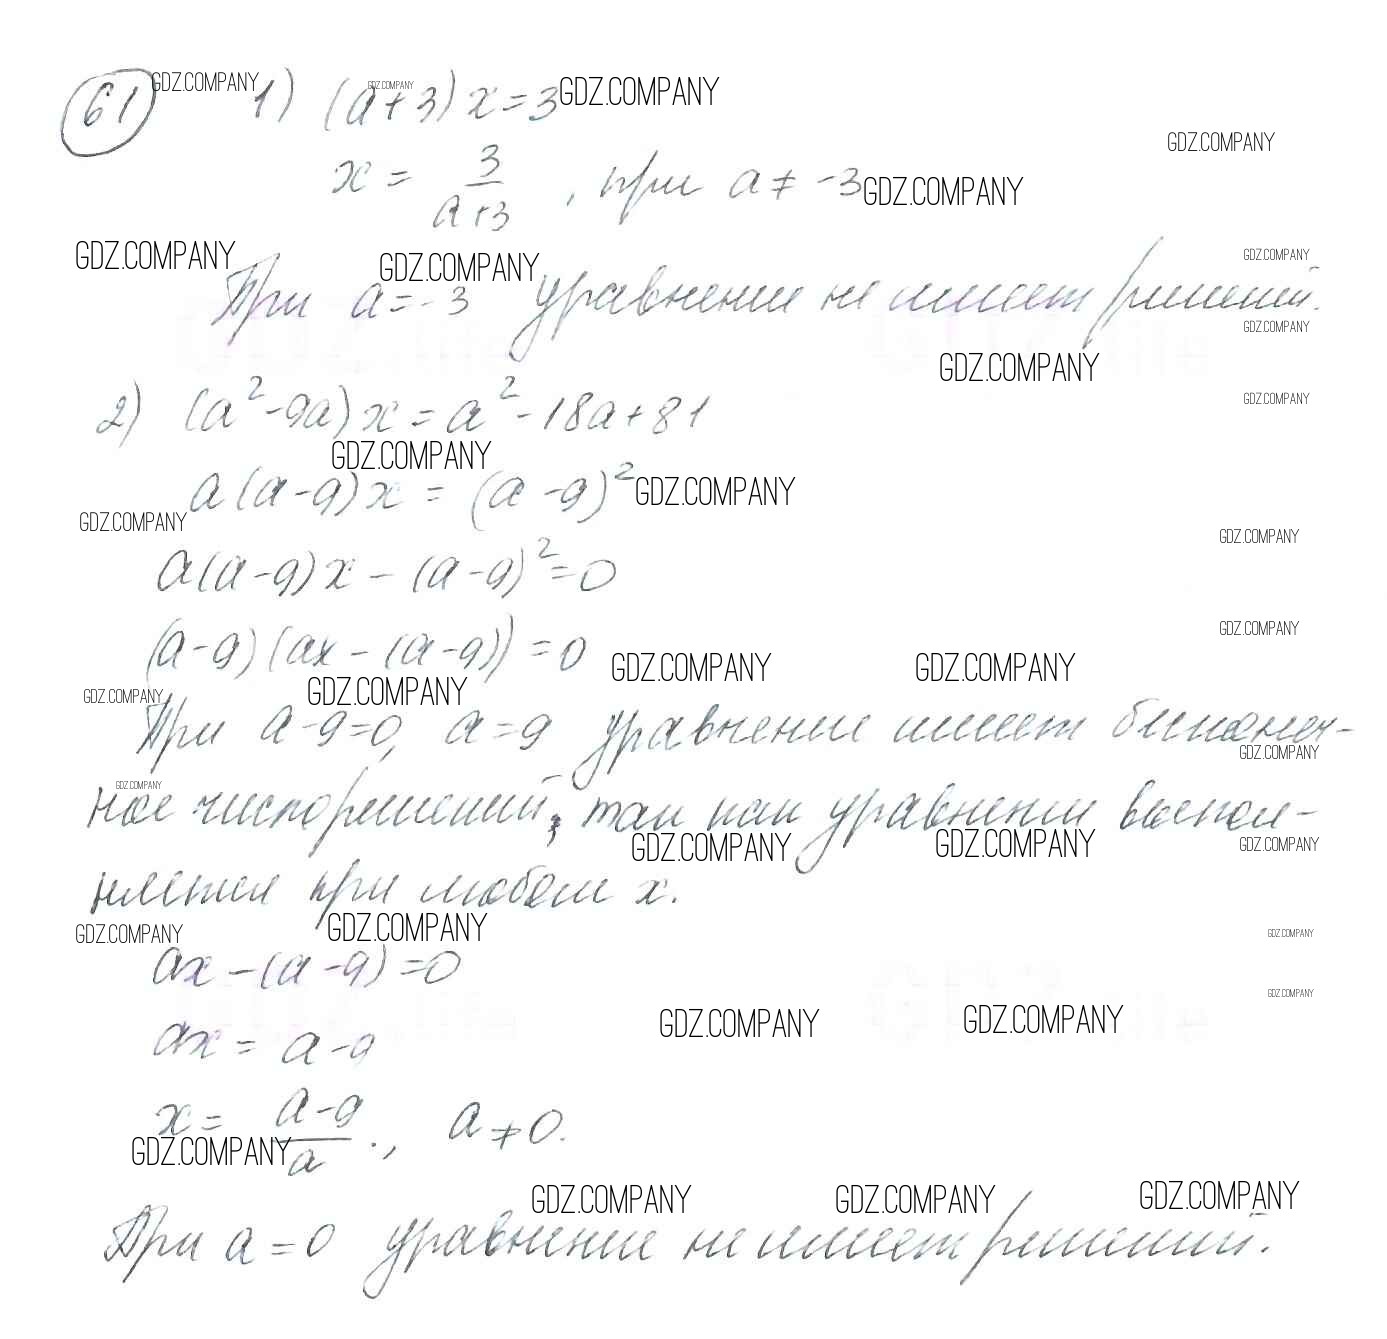 61 GDZ.COMPANY 1) (a+3)x=3 GDZ.COMPANY GDZ.COMPANY
GDZ.COMPANY
x = 3/(a+3), при a ≠ -3 GDZ.COMPANY
GDZ.COMPANY GDZ.COMPANY GDZ.COMPANY
При a=-3 уравнение не имеет решений.
GDZ.COMPANY
GDZ.COMPANY
2) (a²-9a)x=a²-18a+81 GDZ.COMPANY
GDZ.COMPANY
a(a-9)x = (a-9)² GDZ.COMPANY
GDZ.COMPANY GDZ.COMPANY
a(a-9)x-(a-9)²=0
GDZ.COMPANY
(a-9)(ax-(a-9))=0 GDZ.COMPANY GDZ.COMPANY
GDZ.COMPANY GDZ.COMPANY
При a-9=0, a=9 уравнение имеет бесконеч-
GDZ.COMPANY
GDZ.COMPANY
ное число решений, так как уравнение выпол-
GDZ.COMPANY GDZ.COMPANY GDZ.COMPANY
няется при любом x.
GDZ.COMPANY GDZ.COMPANY GDZ.COMPANY
ax-(a-9)=0
GDZ.COMPANY
GDZ.COMPANY GDZ.COMPANY
ax = a-9
x = (a-9)/a, a≠0.
GDZ.COMPANY
GDZ.COMPANY GDZ.COMPANY GDZ.COMPANY
При a=0 уравнение не имеет решений.